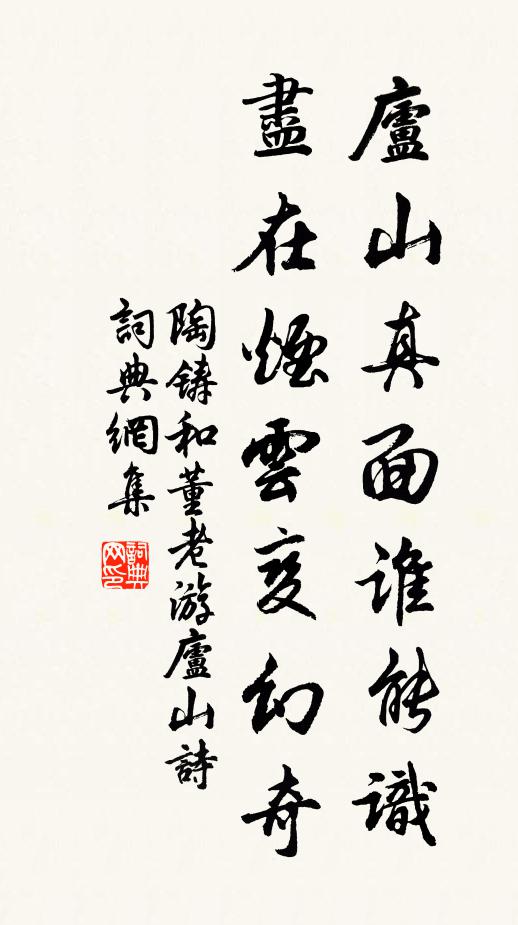 廬山真面誰能識
盡在煙雲變幻奇
陶鑄和董老游廬山詩
詞典網集
詞典网印